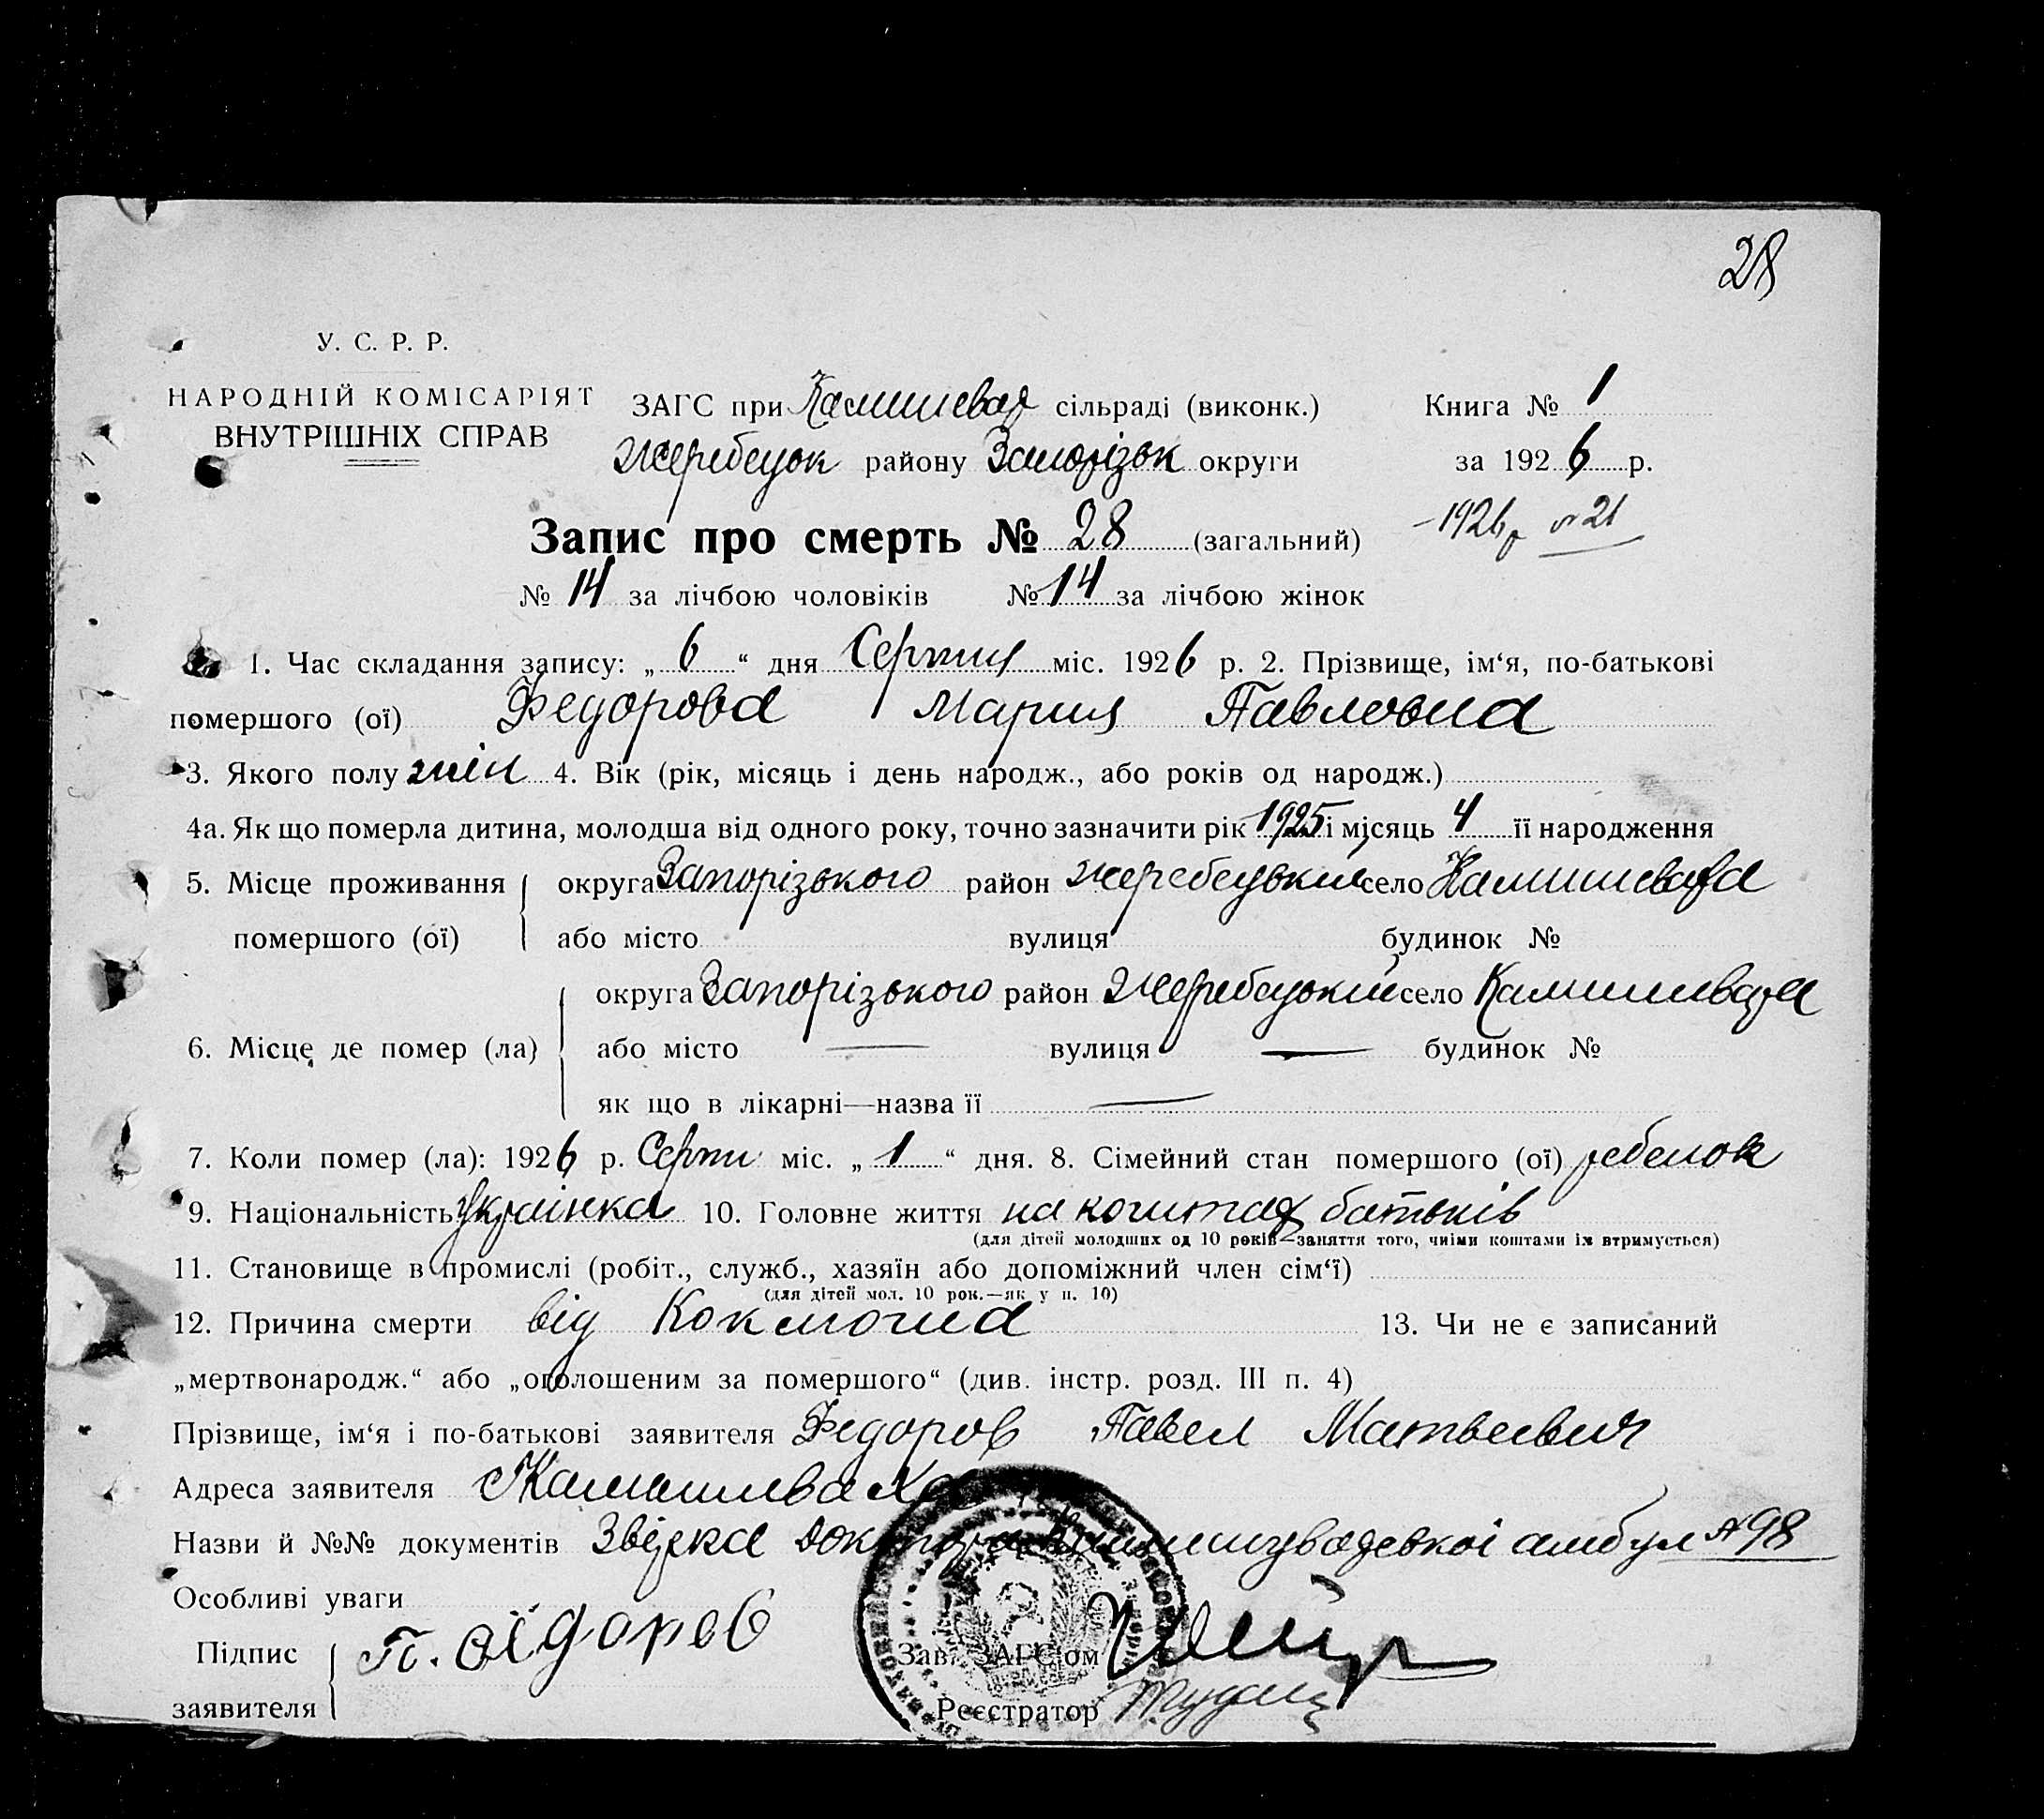 28
У. С. Р. Р.
НАРОДНІЙ КОМІСАРІЯТ
ВНУТРІШНІХ СПРАВ
ЗАГС при Камишевах сільраді (виконк.) Книга № 1
Жеребецьк району Запорізьк округи за 1926 р.
Запис про смерть № 28 (загальний) 1926р 21
№ 14 за лічбою чоловіків № 14 за лічбою жінок
1. Час складання запису: „6“ дня Серпня міс. 1926 р. 2. Прізвище, ім‘я, по-батькові
помершого (ої) Федорова Мария Павловна
3. Якого полу жін 4. Вік (рік, місяць і день народж., або років од народж.)
4а. Як що померла дитина, молодша від одного року, точно зазначити рік 1925 і місяць 4 її народження
5. Місце проживання округа Запорізького район Жеребецький село Камишеваха
помершого (ої) або місто вулиця будинок №
округа Запорізького район Жеребецький село Камишеваха
6. Місце де помер (ла) або місто — вулиця — будинок №
як що в лікарні—назва її —
7. Коли помер (ла): 1926 р. Серпн міс. „1“ дня. 8. Сімейний стан помершого (ої) ребенок
9. Національність Українка 10. Головне життя на коштах батьків
(для дітей молодших од 10 років—заняття того, чиїми коштами їх втримується)
11. Становище в промислі (робіт., служб., хазяїн або допоміжний член сім‘ї)
(для дітей мол. 10 рок.—як у п. 10)
12. Причина смерти від Коклюша 13. Чи не є записаний
„мертвонародж.“ або „оголошеним за помершого“ (див. інстр. розд. III п. 4)
Прізвище, ім‘я і по-батькові заявителя Федоров Павел Матвеевич
Адреса заявителя Камишеваха
Назви й №№ документів амбул № 98
Особливі уваги
Підпис П. Фідоров Зав. ЗАГС‘ом
заявителя Реєстратор